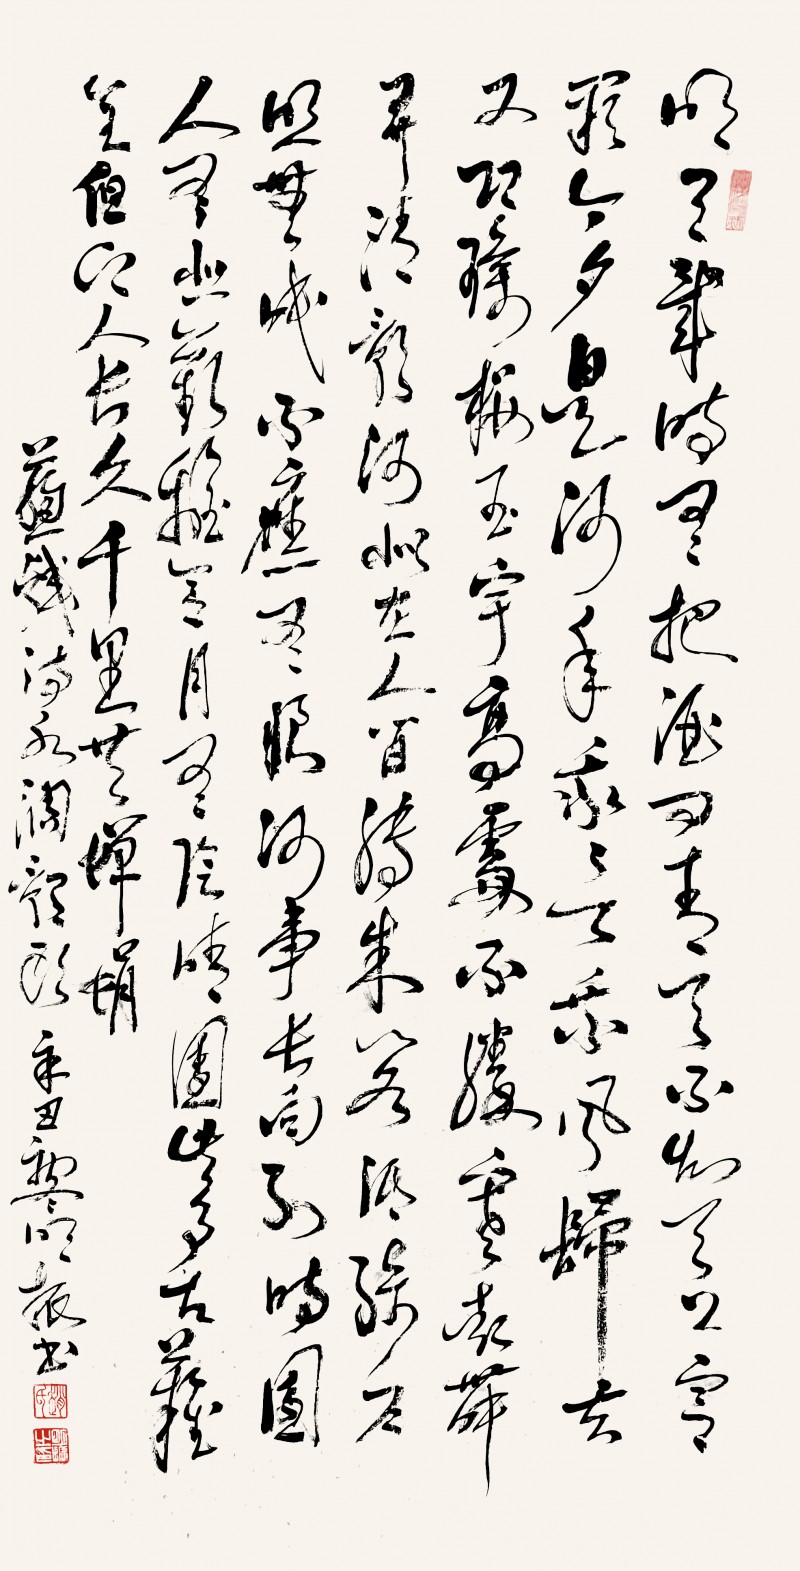 明月幾時有把酒问青天不知天上宫
闕今夕是何年我欲乘風歸去
又恐瓊樓玉宇高處不勝寒起舞
弄清影何似在人间轉朱阁低綺户
照無眠不應有恨何事长向别時圓
人有悲歡離合月有陰晴圓此事古難
全但願人长久千里共嬋娟
蘇軾詩水調歌头 辛丑 明振书